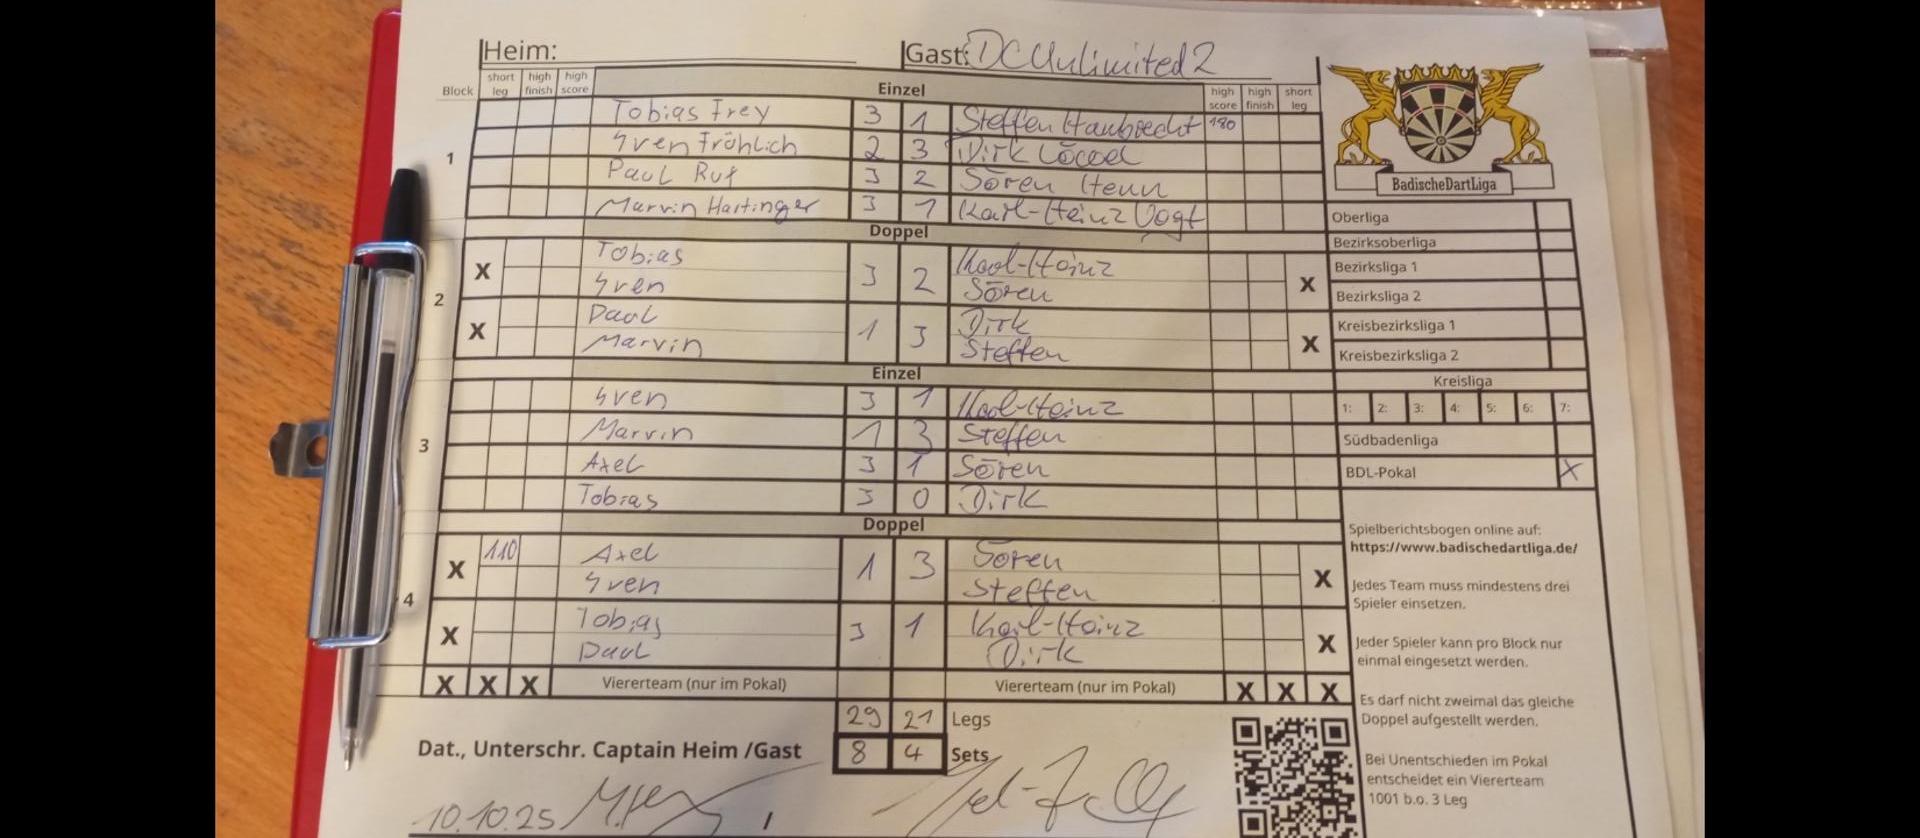 Heim: Gast: DC Unlimited 2
Block short leg high finish high score Einzel high score high finish short leg
1
Tobias Frey 3 1 Steffen Haubrecht 180
Sven Fröhlich 2 3 Dirk
Paul Ruf 3 2 Sören Henn
Marvin Hartinger 3 1 Karl-Heinz Vogt
BadischeDartLiga
Doppel
2
X Tobias 3 2 Karl-Heinz X
Sven Sören
X Paul 1 3 Dirk X
Marvin Steffen
Einzel
3
Sven 3 1 Karl-Heinz
Marvin 1 3 Steffen
Axel 3 1 Sören
Tobias 3 0 Dirk
Doppel
4
X 110 Axel 1 3 Sören X
Sven Steffen
X Tobias 3 1 Karl-Heinz X
Paul Dirk
X X X Viererteam (nur im Pokal) Viererteam (nur im Pokal) X X X
29 21 Legs
Dat., Unterschr. Captain Heim /Gast 8 4 Sets
10.10.25
Oberliga
Bezirksoberliga
Bezirksliga 1
Bezirksliga 2
Kreisbezirksliga 1
Kreisbezirksliga 2
Kreisliga
1: 2: 3: 4: 5: 6: 7:
Südbadenliga
BDL-Pokal X
Spielberichtsbogen online auf:
https://www.badischedartliga.de/
Jedes Team muss mindestens drei
Spieler einsetzen.
Jeder Spieler kann pro Block nur
einmal eingesetzt werden.
Es darf nicht zweimal das gleiche
Doppel aufgestellt werden.
Bei Unentschieden im Pokal
entscheidet ein Viererteam
1001 b.o. 3 Leg